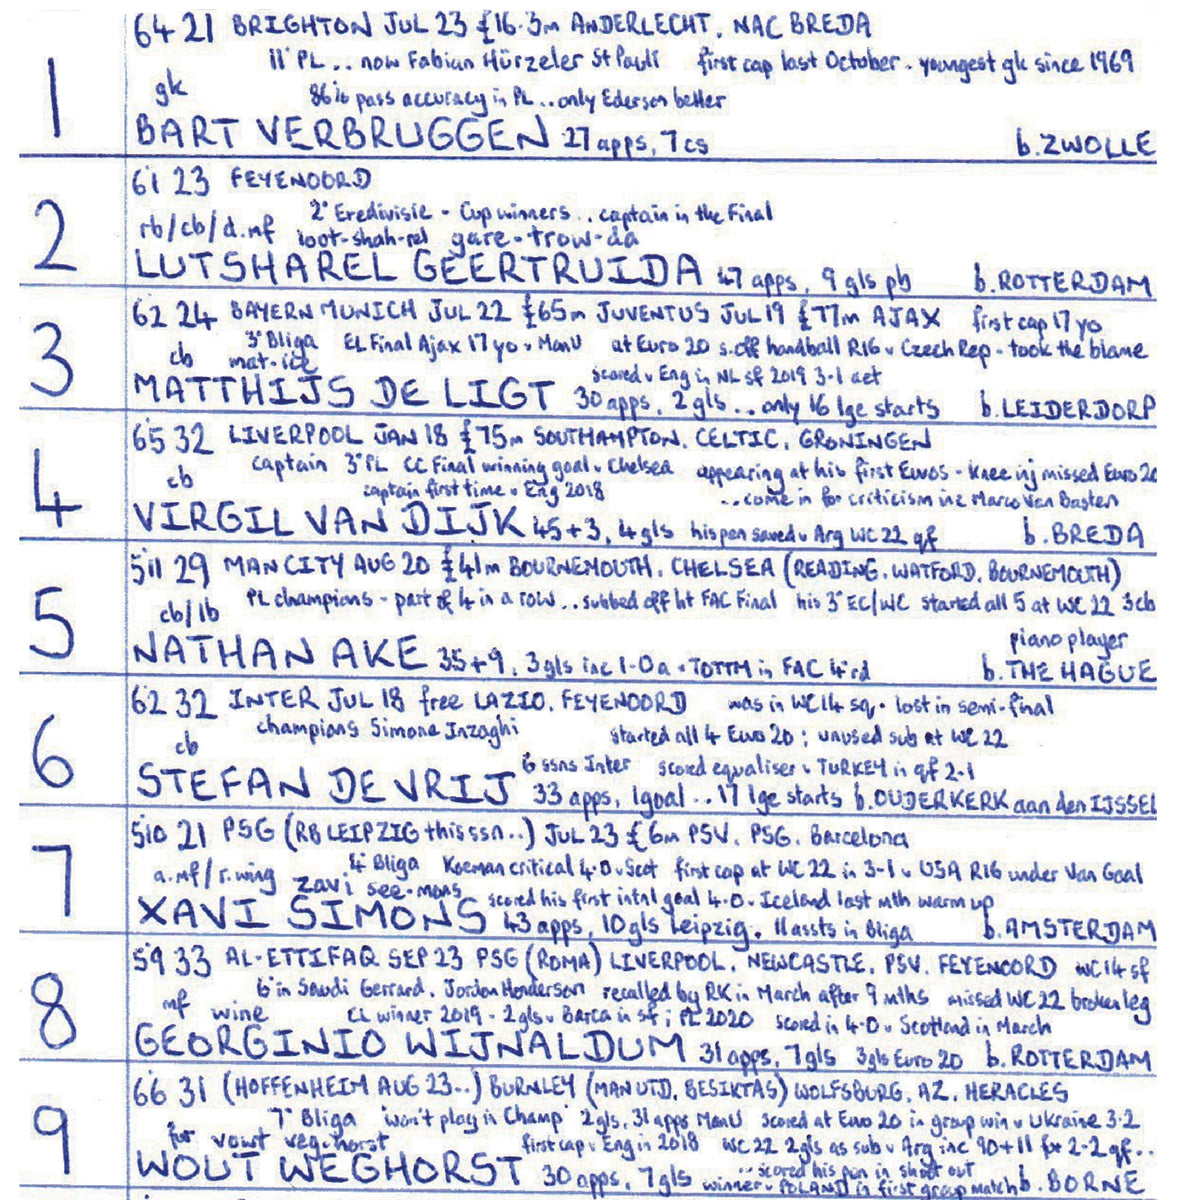 1
6'4 21 BRIGHTON JUL 23 £16.3m ANDERLECHT, NAC BREDA
11° PL .. now Fabian Hürzeler St Pauli first cap last October - youngest gk since 1969
gk 86% pass accuracy in PL .. only Ederson better
BART VERBRUGGEN 27 apps, 7 cs b. ZWOLLE
2
6'1 23 FEYENOORD
2° Eredivisie - Cup winners .. captain in the Final
rb/cb/d.mf loot-shah-rel gare-trow-da
LUTSHAREL GEERTRUIDA 47 apps, 9 gls pb b. ROTTERDAM
3
6'2 24 BAYERN MUNICH JUL 22 £65m JUVENTUS JUL 19 £77m AJAX first cap 17 yo
3° Bliga EL Final Ajax 17 yo v ManU at Euro 20 s.off handball R16 v Czech Rep - took the blame
cb mat-ice scored v Eng in NL sf 2019 3-1 aet
MATTHIJS DE LIGT 30 apps, 2 gls .. only 16 lge starts b. LEIDERDORP
4
6'5 32 LIVERPOOL JAN 18 £75m SOUTHAMPTON, CELTIC, GRONINGEN
captain 3° PL CC Final winning goal v Chelsea appearing at his first Euros - knee inj missed Euro 20
cb captain first time v Eng 2018 .. come in for criticism inc Marco Van Basten
VIRGIL VAN DIJK 45+3, 4 gls his pen saved v Arg WC 22 qf b. BREDA
5
5'11 29 MAN CITY AUG 20 £41m BOURNEMOUTH, CHELSEA (READING, WATFORD, BOURNEMOUTH)
PL champions - part of 4 in a row .. subbed off ht FAC Final his 3° EC/WC started all 5 at WC 22 3cb
cb/lb piano player
NATHAN AKE 35+9, 3 gls inc 1-0 a v TOTTM in FAC 4°rd b. THE HAGUE
6
6'2 32 INTER JUL 18 free LAZIO, FEYENOORD was in WC 14 sq - lost in semi-final
champions Simone Inzaghi started all 4 Euro 20; unused sub at WC 22
cb 6 ssns Inter scored equaliser v TURKEY in qf 2-1
STEFAN DE VRIJ 33 apps, 1 goal .. 17 lge starts b. OUDERKERK aan den IJSSEL
7
5'10 21 PSG (RB LEIPZIG this ssn ..) JUL 23 £6m PSV, PSG, Barcelona
4° Bliga Koeman critical 4-0 v Scot first cap at WC 22 in 3-1 v USA R16 under Van Gaal
a.mf/r.wing zavi see-mons scored his first intnl goal 4-0 v Iceland last mth warm up
XAVI SIMONS 43 apps, 10 gls Leipzig, 11 assts in Bliga b. AMSTERDAM
8
5'9 33 AL-ETTIFAQ SEP 23 PSG (ROMA) LIVERPOOL, NEWCASTLE, PSV, FEYENOORD WC 14 sf
6° in Saudi Gerrard, Jordan Henderson recalled by RK in March after 9 mths missed WC 22 broken leg
mf wine CL winner 2019 - 2 gls v Barca in sf; PL 2020 scored in 4-0 v Scotland in March
GEORGINIO WIJNALDUM 31 apps, 7 gls 3 gls Euro 20 b. ROTTERDAM
9
6'6 31 (HOFFENHEIM AUG 23 ..) BURNLEY (MAN UTD, BESIKTAS) WOLFSBURG, AZ, HERACLES
7° Bliga 'won't play in Champ' 2 gls, 31 apps ManU scored at Euro 20 in group win v Ukraine 3-2
for vowt veg-horst first cap v Eng in 2018 WC 22 2 gls as sub v Arg inc 90+11 for 2-2 qf ..
.. scored his pen in shoot out
WOUT WEGHORST 30 apps, 7 gls winner v POLAND in first group match b. BORNE